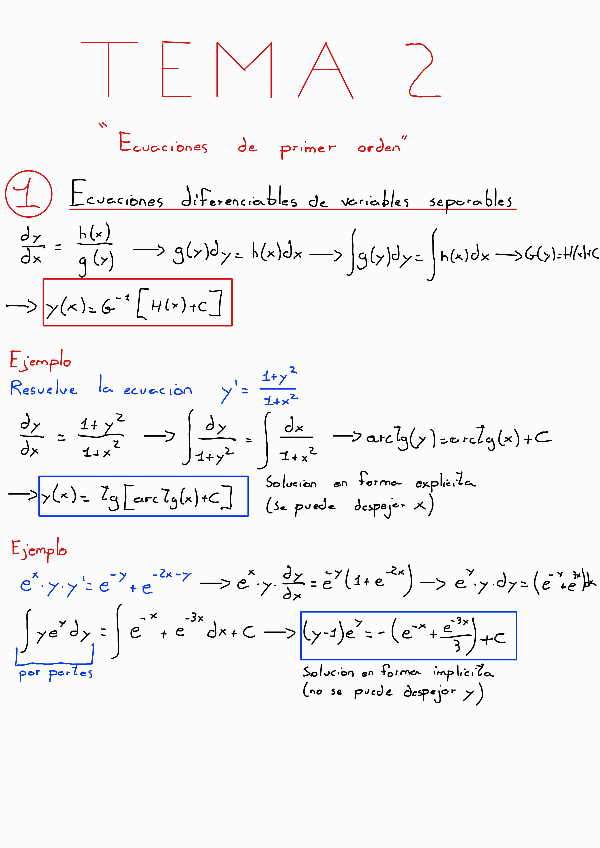 TEMA 2
"Ecuaciones de primer orden"
1 Ecuaciones diferenciables de variables separables
dy/dx = h(x)/g(y) → g(y)dy = h(x)dx → ∫g(y)dy = ∫h(x)dx → G(y)=H(x)+C
→ y(x) = G⁻¹[H(x)+C]
Ejemplo
Resuelve la ecuación y' = (1+y²)/(1+x²)
dy/dx = (1+y²)/(1+x²) → ∫dy/(1+y²) = ∫dx/(1+x²) → arctg(y)=arctg(x)+C
→ y(x) = tg[arctg(x)+C] Solución en forma explícita
(se puede despejar x)
Ejemplo
eˣ·y·y' = e⁻ʸ + e⁻²ˣ⁻ʸ → eˣ·y·dy/dx = e⁻ʸ(1+e⁻²ˣ) → eʸ·y·dy = (e⁻ˣ+e⁻³ˣ)dx
∫yeʸdy = ∫e⁻ˣ + e⁻³ˣ dx + C → (y-1)eʸ = -(e⁻ˣ + e⁻³ˣ/3) + C
por partes
Solución en forma implícita
(no se puede despejar y)